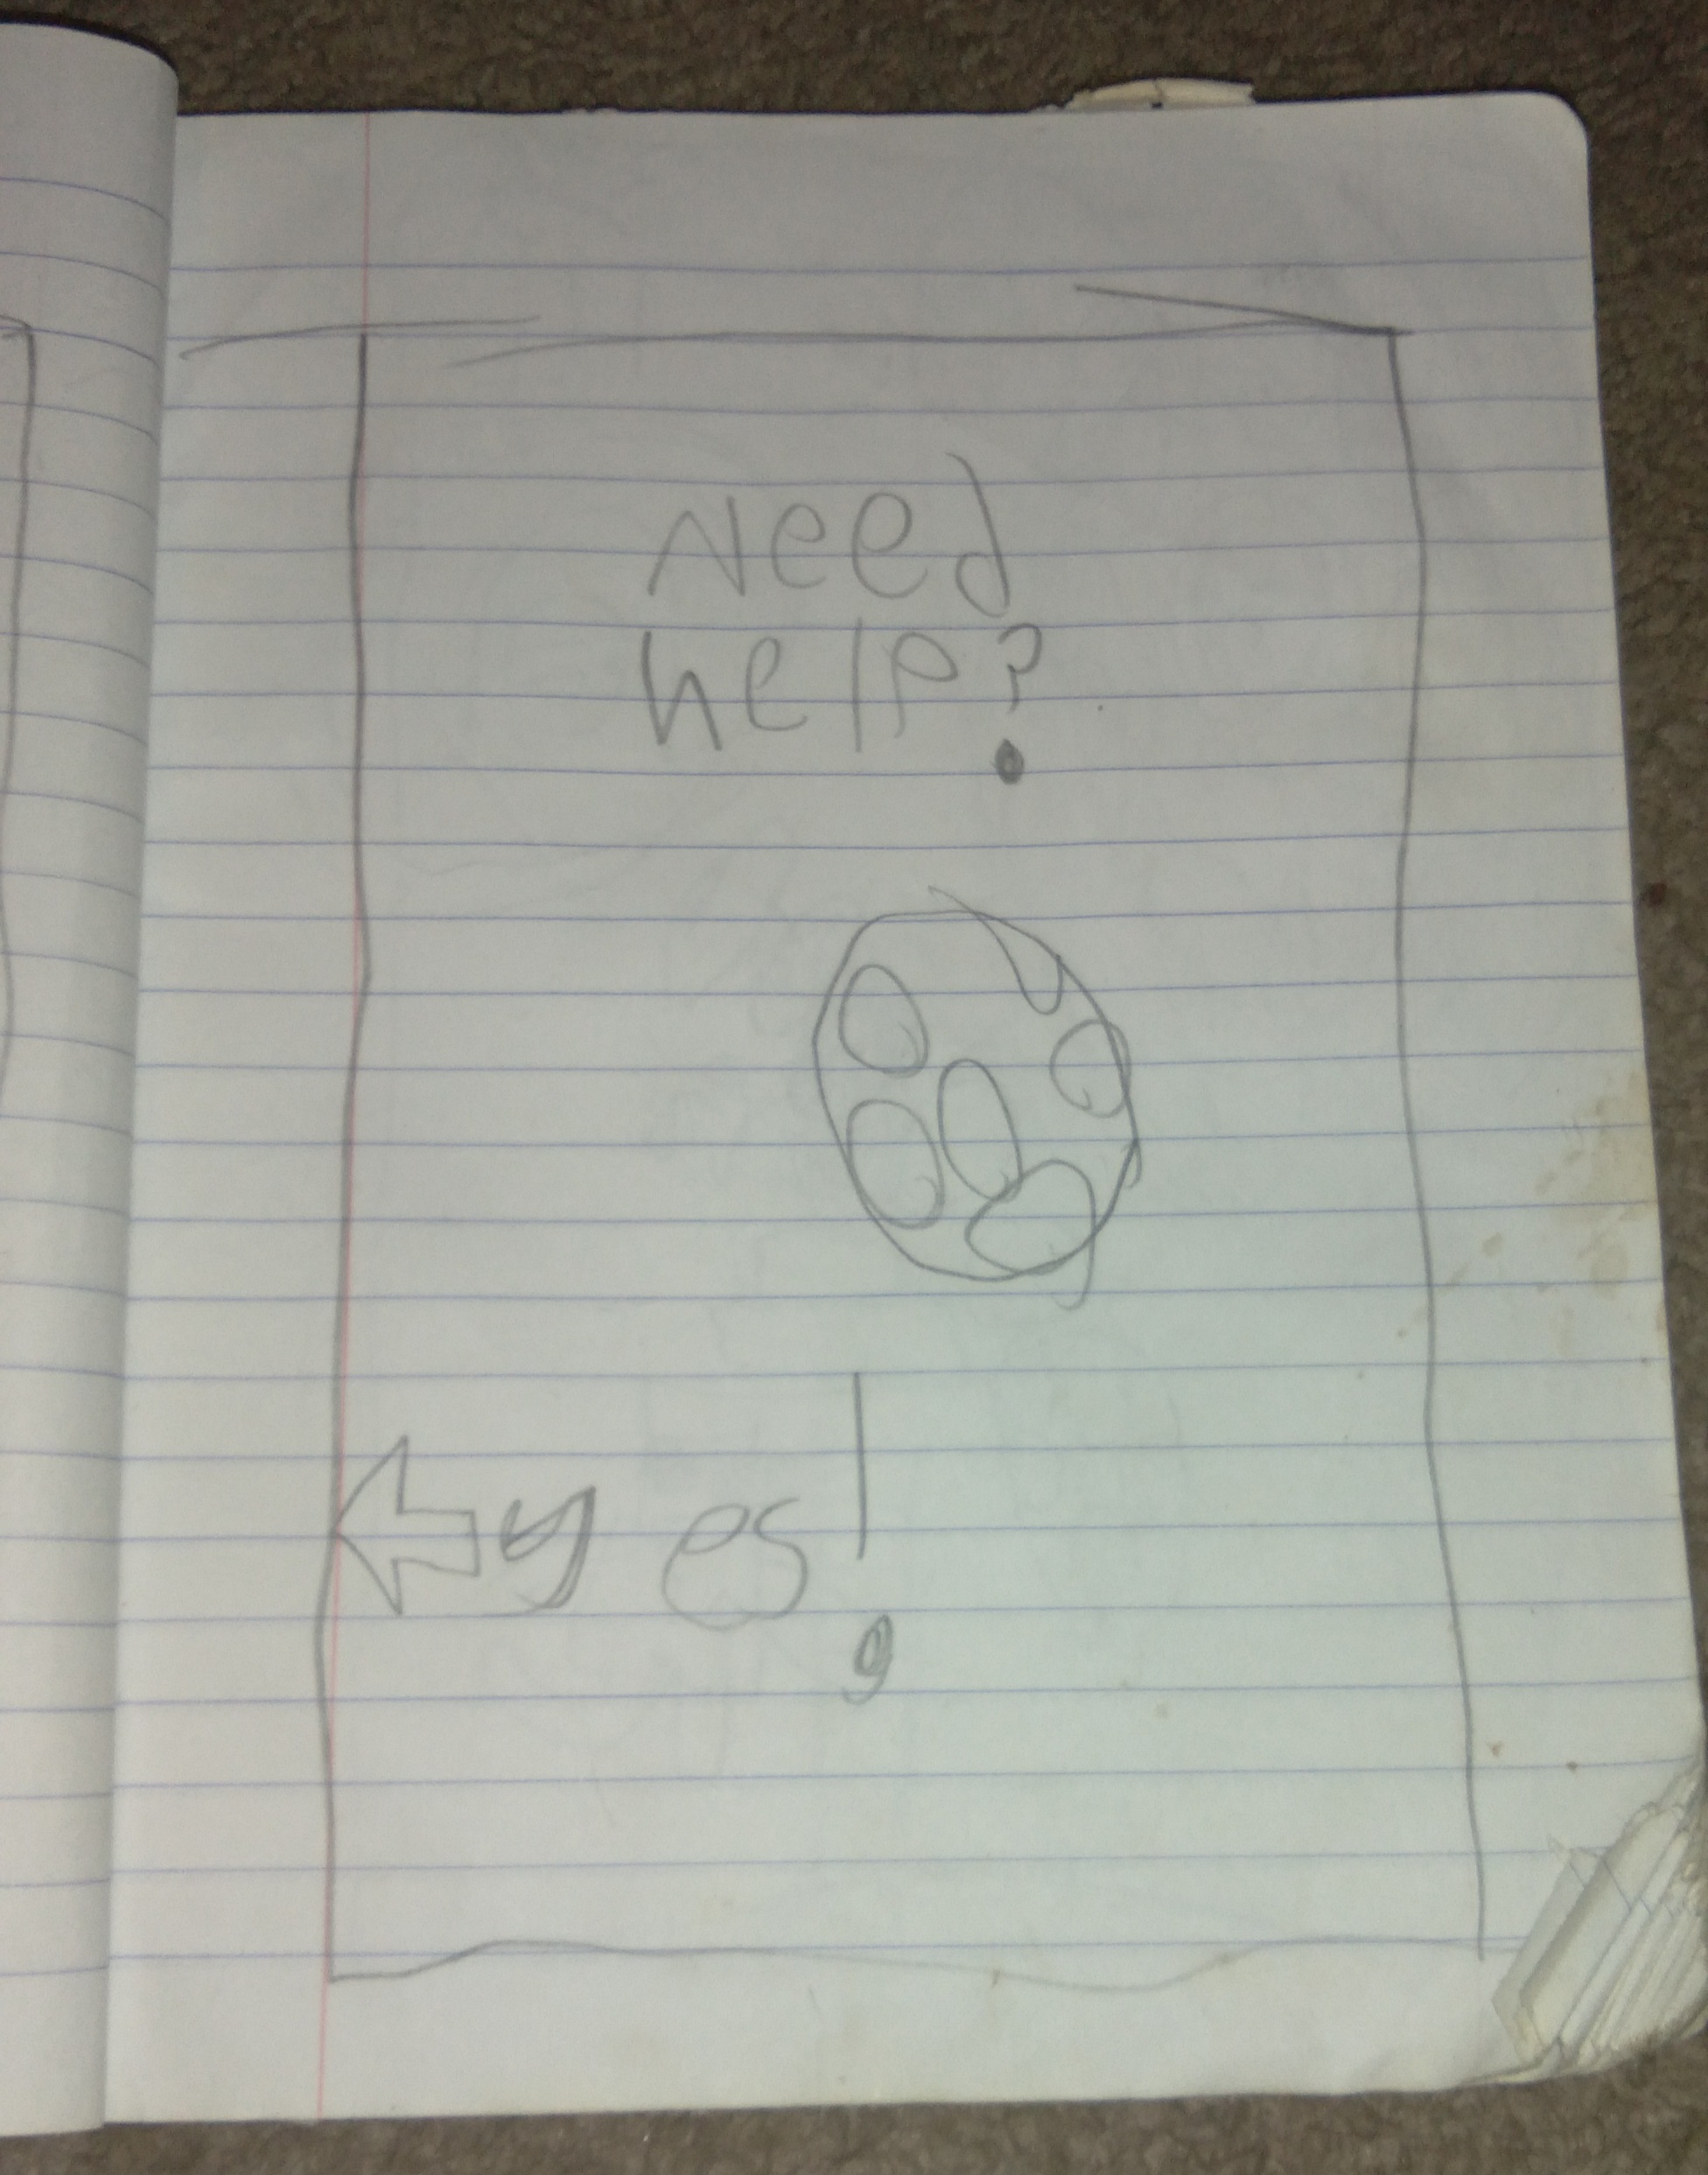 Need
help?
yes!